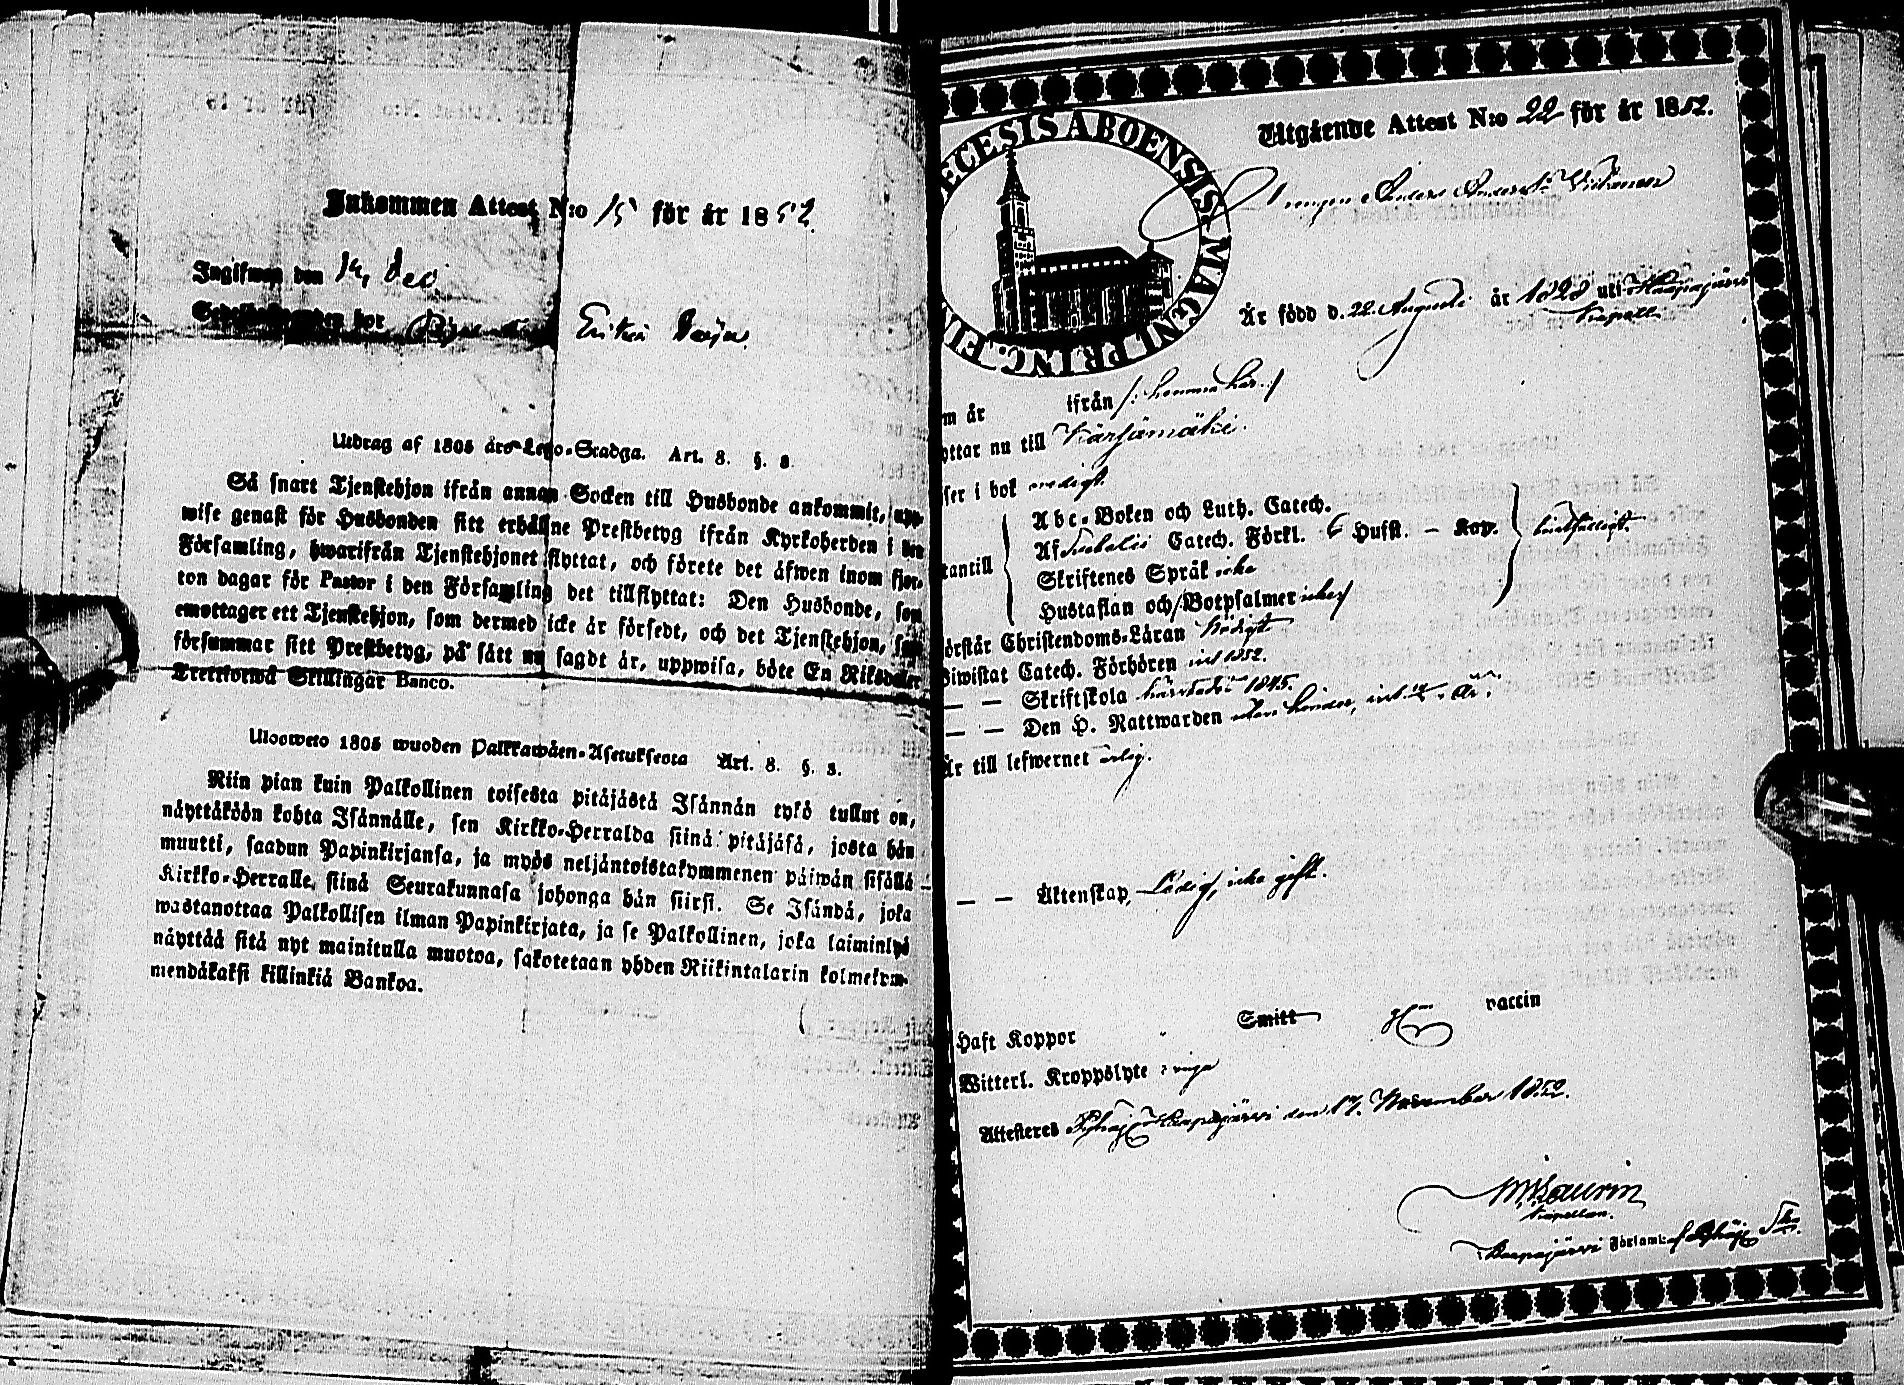 Inkommen Attest N:o 15 för år 1852.
Ingifwen den 14 Dec
Sedelhafwanden bor
Utdrag af 1805 års Lego-Stadga. Art. 8. §. 3.
Så snart Tjenstehjon ifrån annan Socken till Husbonde ankommit, upp-
wise genast för Husbonden sitt erhållne Prestbetyg ifrån Kyrkoherden i den
Församling, hwarifrån Tjenstehjonet flyttat, och förete det äfwen inom fjor-
ton dagar för Pastor i den Församling det tillflyttat: Den Husbonde, som
emottager ett Tjenstehjon, som dermed icke är försedt, och det Tjenstehjon, som
försummar sitt Prestbetyg, på sätt nu sagdt är, uppwisa, böte En Riksdaler
Trettiotwå Skillingar Banco.
Ulosweto 1805 wuoden Palkkawäen-Asetuksesta Art. 8. §. 3.
Niin pian kuin Palkollinen toisesta pitäjästä Isännän tykö tullut on,
näyttäköön kohta Isännälle, sen Kirkko-Herralda siinä pitäjäsä, josta hän
muutti, saadun Papinkirjansa, ja myös neljäntoistakymmenen päiwän sisällä
Kirkko-Herralle, siinä Seurakunnasa johonga hän siirsi. Se Isändä, joka
wastanottaa Palkollisen ilman Papinkirjata, ja se Palkollinen, joka laiminlyö
näyttää sitä nyt mainitulla muotoa, sakotetaan yhden Riikintalarin kolmekym-
mendäkaksi killinkiä Bankoa.
ECESIS ABOENSIS. MAGNI PRINC. FIN
Utgående Attest N:o 22 för år 1852.
Drengen Anders Anders:n
Är född d. 22 Augusti år 1828 uti Haapajärvi
Kapell
m år ifrån /: hemma här :/
yttar nu till Kärsämäki.
ser i bok nödigt.
Abc-Boken och Luth. Catech.
Af Catech. Förkl. 6 Hufst. — Kap.
tantill Skriftenes Språk icke
Hustaflan och Botpsalmer icke
örstår Christendoms-Läran Nödigt
Biwistat Catech. Förhören inl 1852.
— — Skriftskola 1845.
— — Den H. Nattwarden
Är till lefwernet ärlig.
— — Äktenskap, Ledig, icke gift.
Haft Koppor Smitt vaccin
Witterl. Kroppslyte : inga
Attesteres Pyhäj. Haapajärvi den 17. November 1852.
Laurin
Kapellan.
Haapajärvi Församl. af Pyhäj. S:n